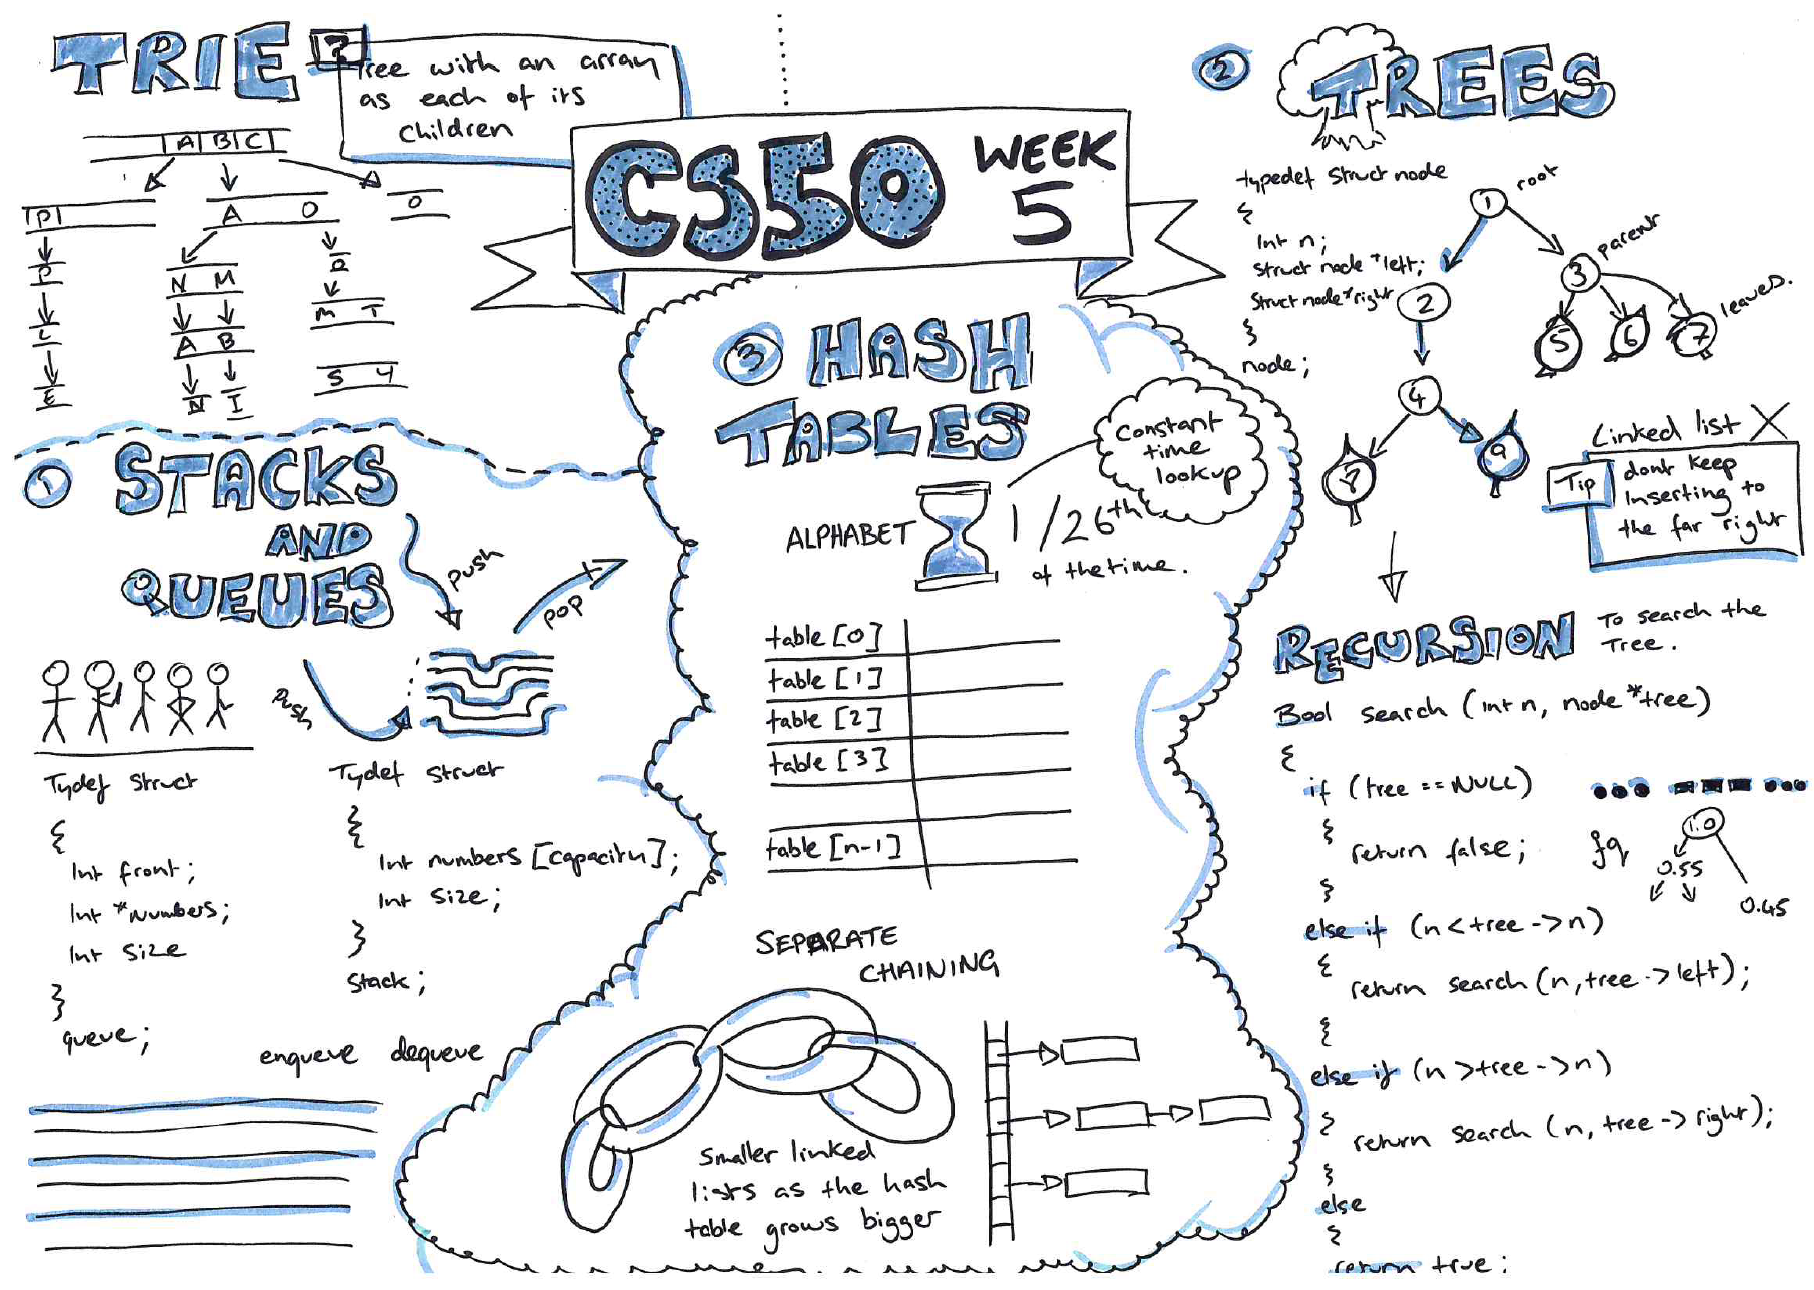 TRIE ?
Tree with an array
as each of its
children
A B C
P
A O
O
P
N M
O
L
A B
M T
E
N I
S Y
CS50 WEEK
5
1 STACKS
AND
QUEUES
push
pop
push
Tydef struct
{
int front;
int *numbers;
int size
}
queue;
Tydef struct
{
{
int numbers [capacity];
int size;
}
stack;
enqueue dequeue
3 HASH
TABLES
Constant
time
lookup
ALPHABET
1/26th
of the time.
table [0]
table [1]
table [2]
table [3]
table [n-1]
SEPARATE
CHAINING
Smaller linked
lists as the hash
table grows bigger
2 TREES
typedef struct node
{
int n;
struct node *left;
struct node *right
}
node;
1 root
2
3 parent
4
5 6 7 leaves.
8 9
Linked list X
Tip
dont keep
inserting to
the far right
RECURSION To search the
Tree.
Bool search (int n, node *tree)
{
if (tree == NULL)
{
return false;
}
else if (n < tree -> n)
{
return search (n, tree -> left);
{
else if (n > tree -> n)
return search (n, tree -> right);
}
else
{
return true;
1.0
0.55
0.45